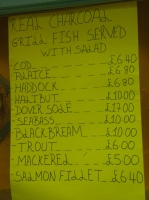 REAL CHARCOAL
GRILL FISH SERVED
WITH SALAD
COD £6.40
PLAICE £6.80
HADDOCK £6.80
HALIBUT £10.00
DOVER SOLE £17.00
SEABASS £10.00
BLACK BREAM £10.00
TROUT £6.00
MACKEREL £5.00
SALMON FILLET £6.40